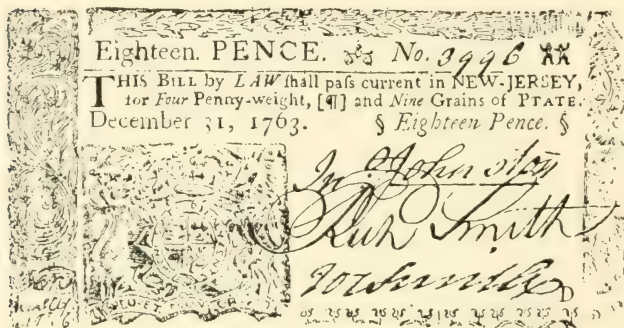 Eighteen. PENCE. No. 3996
THIS BILL by LAW ſhall paſs current in NEW-JERSEY,
for Four Penny-weight, [¶] and Nine Grains of PTATE.
December 31, 1763. § Eighteen Pence. §
Jn. Johnston
Rich Smith
Jos Smith
D